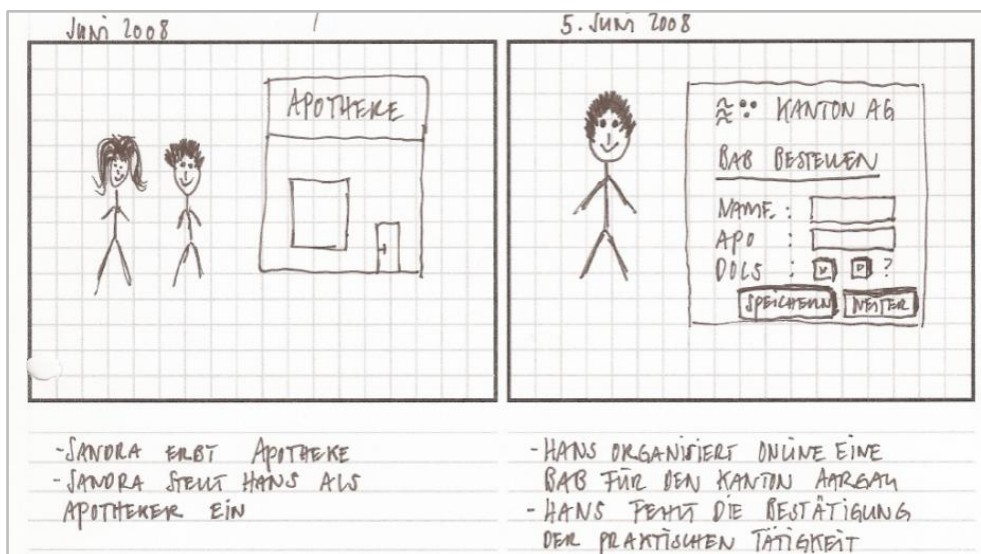 JUNI 2008
APOTHEKE
- SANDRA ERBT APOTHEKE
- SANDRA STELLT HANS ALS
APOTHEKER EIN
5. JUNI 2008
KANTON AG
BAB BESTELLEN
NAME :
APO :
DOCS : ?
SPEICHERN WEITER
- HANS ORGANISIERT ONLINE EINE
BAB FÜR DEN KANTON AARGAU
- HANS FEHLT DIE BESTÄTIGUNG
DER PRAKTISCHEN TÄTIGKEIT